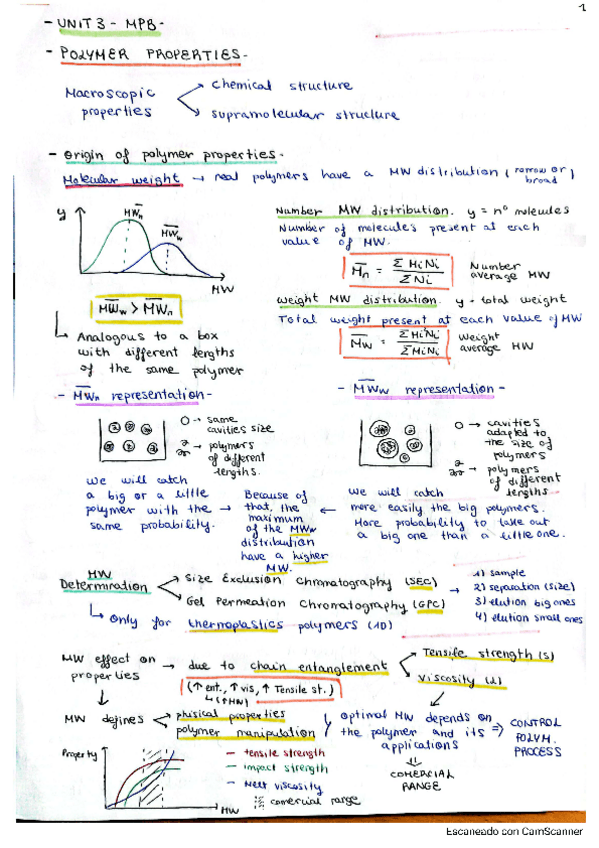 1
- UNIT 3 - MPB -
- POLYMER PROPERTIES -
Macroscopic properties
chemical structure
supramolecular structure
- Origin of polymer properties -
Molecular weight → real polymers have a MW distribution (narrow or broad)
y
MWn
MWw
MW
MWw > MWn
Analogous to a box
with different lengths
of the same polymer
Number MW distribution. y = nº molecules
Number of molecules present at each
value of MW.
Mn = Σ MiNi / Σ Ni
Number average MW
Weight MW distribution. y = total weight
Total weight present at each value of MW
Mw = Σ MiNi / Σ MiNi
Weight average MW
- MWn representation -
O → same
cavities size
→ polymers
of different
lengths.
We will catch
a big or a little
polymer with the
same probability.
→ Because of
that, the
maximum
of the MWw
distribution
have a higher
MW.
- MWw representation -
O → cavities
adapted to
the size of
polymers
→ polymers
of different
lengths
We will catch
more easily the big polymers.
More probability to take out
a big one than a little one.
MW
Determination
Size Exclusion Chromatography (SEC)
Gel Permeation Chromatography (GPC)
→ 1) sample
2) separation (size)
3) elution big ones
4) elution small ones
Only for thermoplastics polymers (1D)
MW effect on
properties
→ due to chain entanglement
Tensile strength (s)
Viscosity (η)
(↑ ent., ↑ vis, ↑ Tensile st.)
(↑MW)
MW defines
phisical properties
polymer manipulation
optimal MW depends on
the polymer and its
applications
⇒ CONTROL
POLYM.
PROCESS
COMERCIAL
RANGE
Property
MW
— tensile strength
— impact strength
— Melt viscosity
comercial range
Escaneado con CamScanner